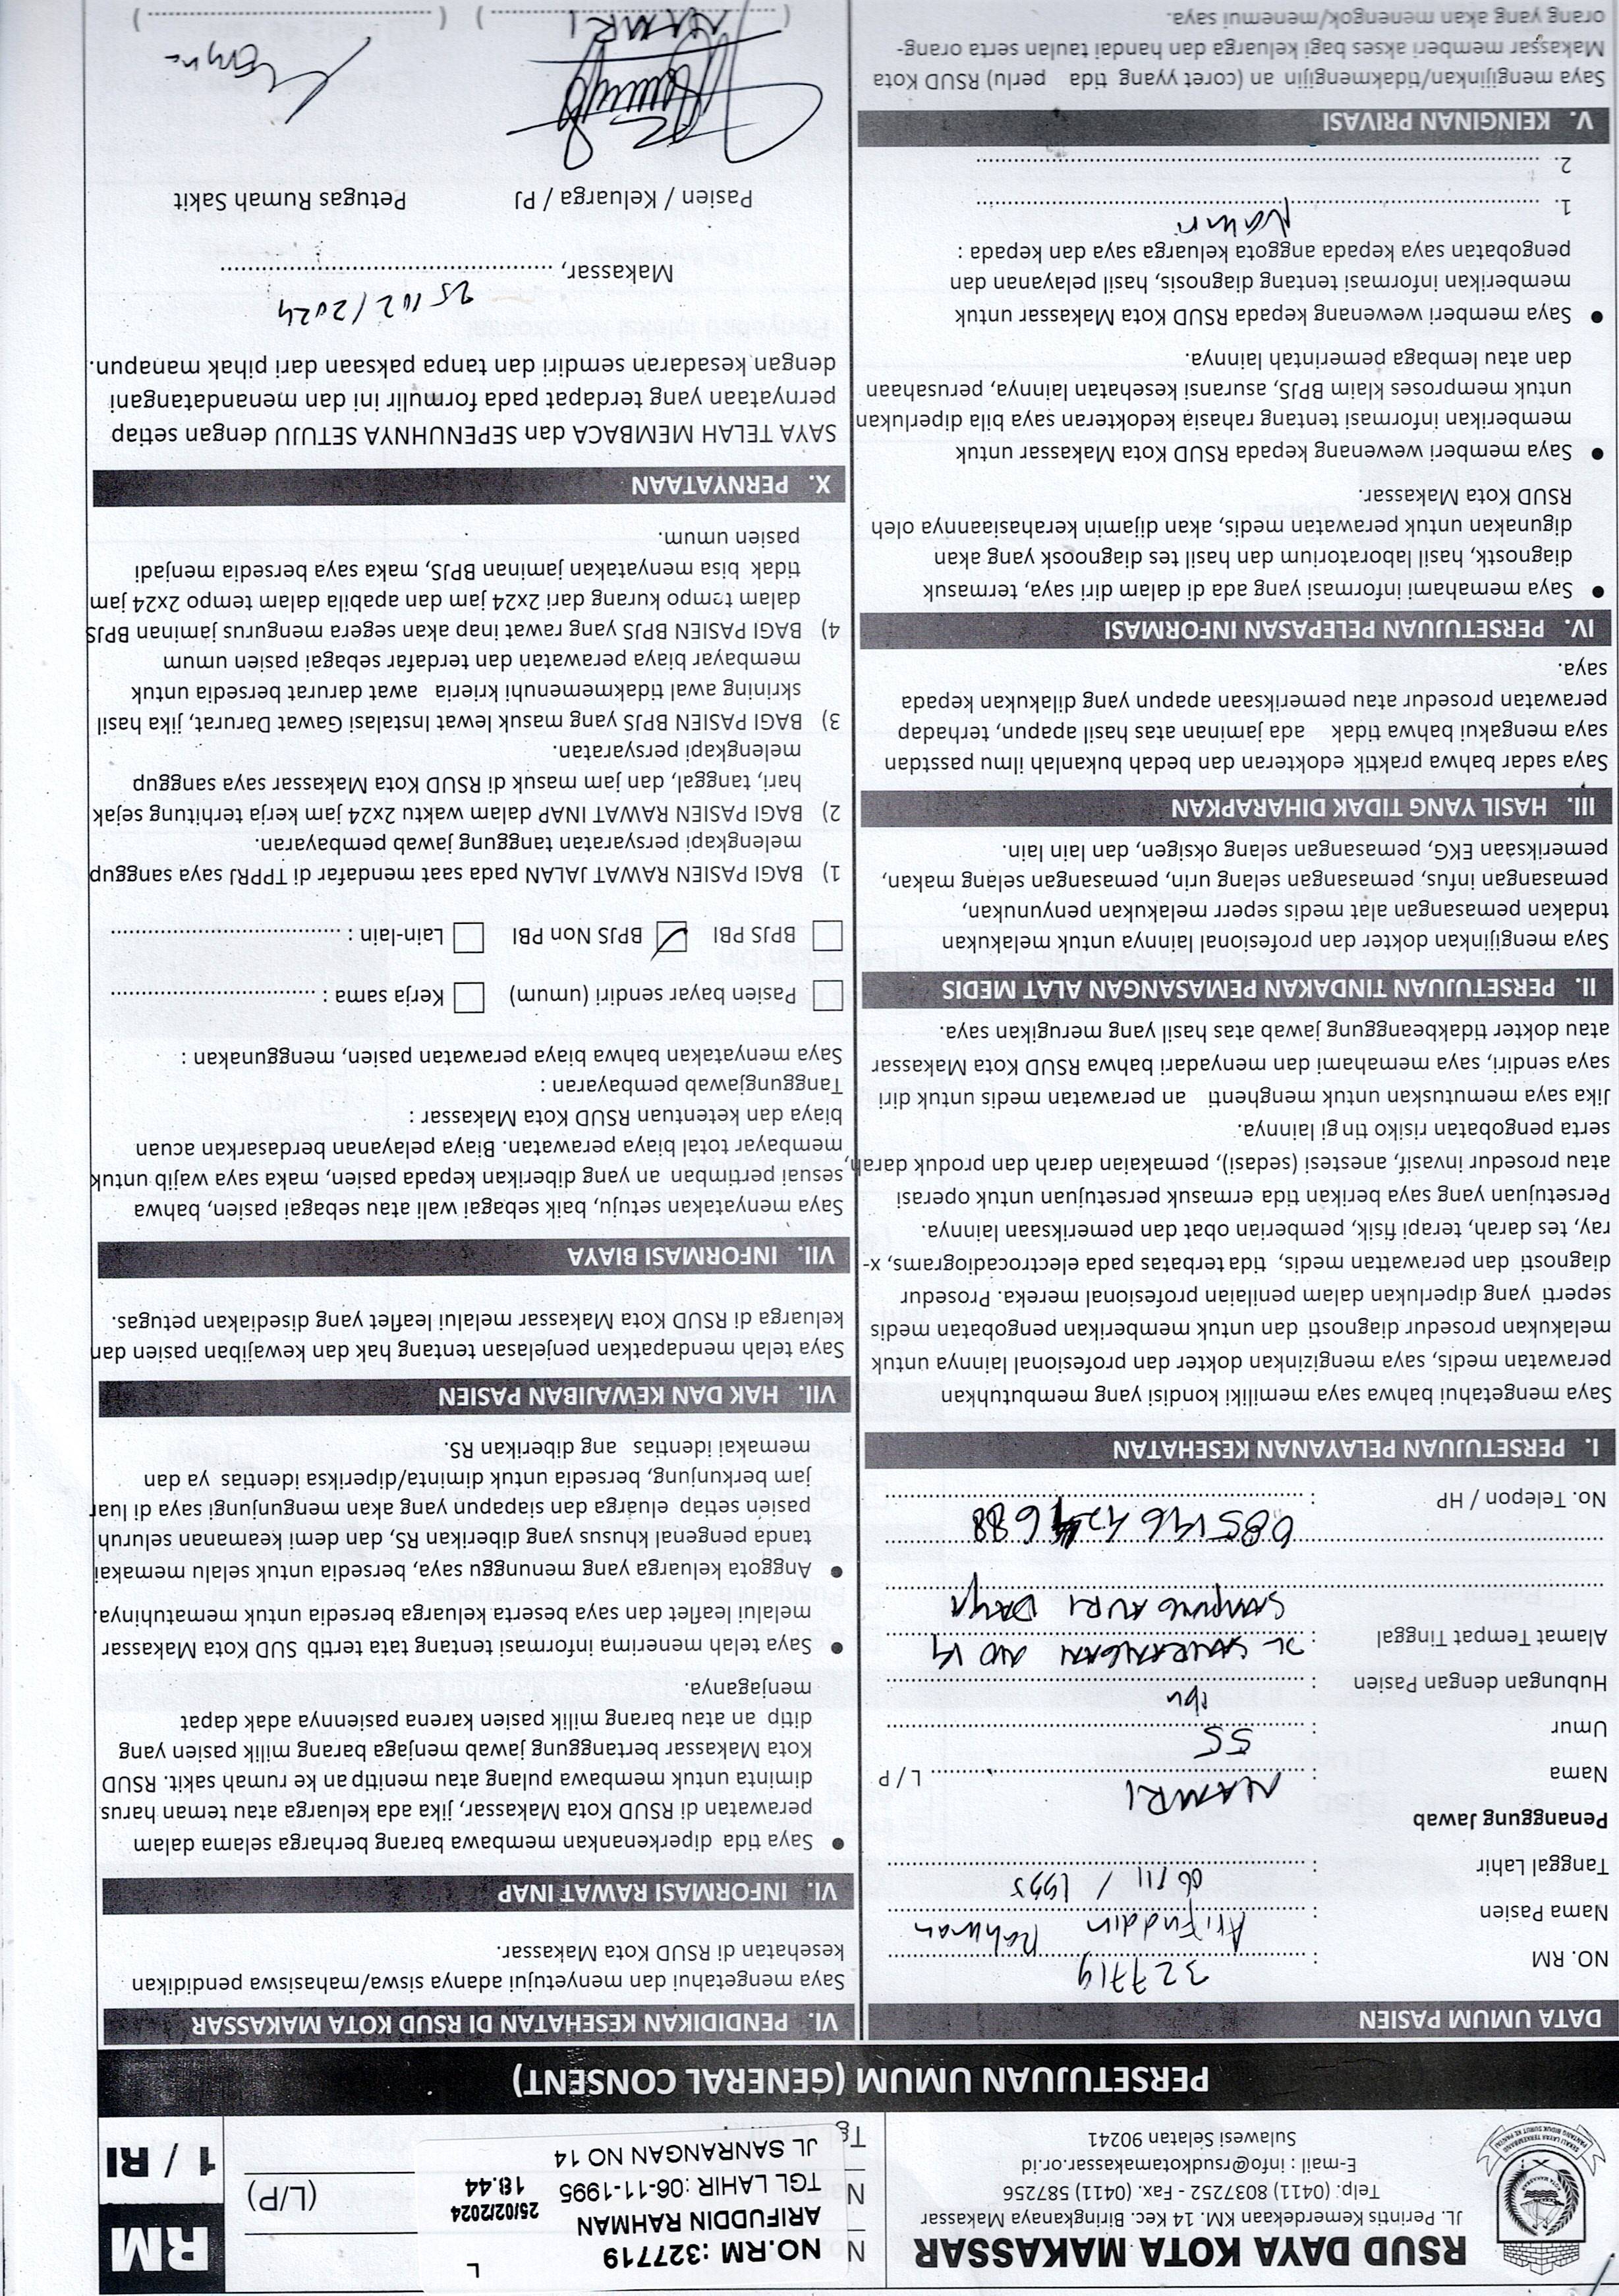 RSUD DAYA KOTA MAKASSAR
JL. Perintis Kemerdekaan KM. 14 Kec. Biringkanaya Makassar
Telp. (0411) 8037252 - Fax. (0411) 587256
E-mail : info@rsudkotamakassar.or.id
Sulawesi Selatan 90241
KOTA MAKASSAR
SEKALI LAYAR TERKEMBANG
PANTANG BIDUK SURUT KE PANTAI
N
N
Tg
NO.RM :327719 L
ARIFUDDIN RAHMAN 25/02/2024
TGL LAHIR :06-11-1995 18.44
JL SANRANGAN NO 14
(L/P)
RM
1 / RI
PERSETUJUAN UMUM (GENERAL CONSENT)
DATA UMUM PASIEN
NO. RM : 327719
Nama Pasien : Arifuddin Rahman
Tanggal Lahir : 06/11/1995
Penanggung Jawab
Nama : NAMRI L / P
Umur : 55
Hubungan dengan Pasien : ibu
Alamat Tempat Tinggal : JL SANRANGAN NO 14
AURI DAYA
No. Telepon / HP :
I. PERSETUJUAN PELAYANAN KESEHATAN
Saya mengetahui bahwa saya memiliki kondisi yang membutuhkan
perawatan medis, saya mengizinkan dokter dan profesional lainnya untuk
melakukan prosedur diagnosti dan untuk memberikan pengobatan medis
seperti yang diperlukan dalam penilaian profesional mereka. Prosedur
diagnosti dan perawattan medis, tida terbatas pada electrocadiograms, x-
ray, tes darah, terapi fisik, pemberian obat dan pemeriksaan lainnya.
Persetujuan yang saya berikan tida ermasuk persetujuan untuk operasi
atau prosedur invasif, anestesi (sedasi), pemakaian darah dan produk darah,
serta pengobatan risiko tin gi lainnya.
Jika saya memutuskan untuk menghenti an perawatan medis untuk diri
saya sendiri, saya memahami dan menyadari bahwa RSUD Kota Makassar
atau dokter tidakbeanggung jawab atas hasil yang merugikan saya.
II. PERSETUJUAN TINDAKAN PEMASANGAN ALAT MEDIS
Saya mengijinkan dokter dan profesional lainnya untuk melakukan
tndakan pemasangan alat medis seperr melakukan penyunukan,
pemasangan infus, pemasangan selang urin, pemasangan selang makan,
pemeriksaan EKG, pemasangan selang oksigen, dan lain lain.
III. HASIL YANG TIDAK DIHARAPKAN
Saya sadar bahwa praktik edokteran dan bedah bukanlah ilmu passtdan
saya mengakui bahwa tidak ada jaminan atas hasil apapun, terhadap
perawatan prosedur atau pemeriksaan apapun yang dilakukan kepada
saya.
IV. PERSETUJUAN PELEPASAN INFORMASI
● Saya memahami informasi yang ada di dalam diri saya, termasuk
diagnostk, hasil laboratorium dan hasil tes diagnoosk yang akan
digunakan untuk perawatan medis, akan dijamin kerahasiaannya oleh
RSUD Kota Makassar.
● Saya memberi wewenang kepada RSUD Kota Makassar untuk
memberikan informasi tentang rahasia kedokteran saya bila diperlukan
untuk memproses klaim BPJS, asuransi kesehatan lainnya, perusahaan
dan atau lembaga pemerintah lainnya.
● Saya memberi wewenang kepada RSUD Kota Makassar untuk
memberikan informasi tentang diagnosis, hasil pelayanan dan
pengobatan saya kepada anggota keluarga saya dan kepada :
1. Namri
2.
V. KEINGINAN PRIVASI
Saya mengijinkan/tidakmengijin an (coret yyang tida perlu) RSUD Kota
Makassar memberi akses bagi keluarga dan handai taulan serta orang-
orang yang akan menengok/menemui saya.
VI. PENDIDIKAN KESEHATAN DI RSUD KOTA MAKASSAR
Saya mengetahui dan menyetujui adanya siswa/mahasiswa pendidikan
kesehatan di RSUD Kota Makassar.
VI. INFORMASI RAWAT INAP
● Saya tida diperkenankan membawa barang berharga selama dalam
perawatan di RSUD Kota Makassar, jika ada keluarga atau teman harus
diminta untuk membawa pulang atau menitip an ke rumah sakit. RSUD
Kota Makassar bertanggung jawab menjaga barang milik pasien yang
ditip an atau barang milik pasien karena pasiennya adak dapat
menjaganya.
● Saya telah menerima informasi tentang tata tertib SUD Kota Makassar
melalui leaflet dan saya beserta keluarga bersedia untuk mematuhinya.
● Anggota keluarga yang menunggu saya, bersedia untuk selalu memakai
tanda pengenal khusus yang diberikan RS, dan demi keamanan seluruh
pasien setiap eluarga dan siapapun yang akan mengunjungi saya di luar
jam berkunjung, bersedia untuk diminta/diperiksa identias ya dan
memakai identias ang diberikan RS.
VII. HAK DAN KEWAJIBAN PASIEN
Saya telah mendapatkan penjelasan tentang hak dan kewajiban pasien dan
keluarga di RSUD Kota Makassar melalui leaflet yang disediakan petugas.
VII. INFORMASI BIAYA
Saya menyatakan setuju, baik sebagai wali atau sebagai pasien, bahwa
sesuai pertimban an yang diberikan kepada pasien, maka saya wajib untuk
membayar total biaya perawatan. Biaya pelayanan berdasarkan acuan
biaya dan ketentuan RSUD Kota Makassar :
Tanggungjawab pembayaran :
Saya menyatakan bahwa biaya perawatan pasien, menggunakan :
Pasien bayar sendiri (umum) Kerja sama :
BPJS PBI ✓ BPJS Non PBI Lain-lain :
1) BAGI PASIEN RAWAT JALAN pada saat mendafar di TPPRJ saya sanggup
melengkapi persyaratan tanggung jawab pembayaran.
2) BAGI PASIEN RAWAT INAP dalam waktu 2x24 jam kerja terhitung sejak
hari, tanggal, dan jam masuk di RSUD Kota Makassar saya sanggup
melengkapi persyaratan.
3) BAGI PASIEN BPJS yang masuk lewat Instalasi Gawat Darurat, jika hasil
skrining awal tidakmemenuhi krieria awat darurat bersedia untuk
membayar biaya perawatan dan terdafar sebagai pasien umum
4) BAGI PASIEN BPJS yang rawat inap akan segera mengurus jaminan BPJS
dalam tempo kurang dari 2x24 jam dan apabila dalam tempo 2x24 jam
tidak bisa menyatakan jaminan BPJS, maka saya bersedia menjadi
pasien umum.
X. PERNYATAAN
SAYA TELAH MEMBACA dan SEPENUHNYA SETUJU dengan setiap
pernyataan yang terdapat pada formulir ini dan menandatangani
dengan kesadaran semdiri dan tanpa paksaan dari pihak manapun.
Makassar, 25/02/2024
Pasien / Keluarga / PJ Petugas Rumah Sakit
(NAMRI) ( )